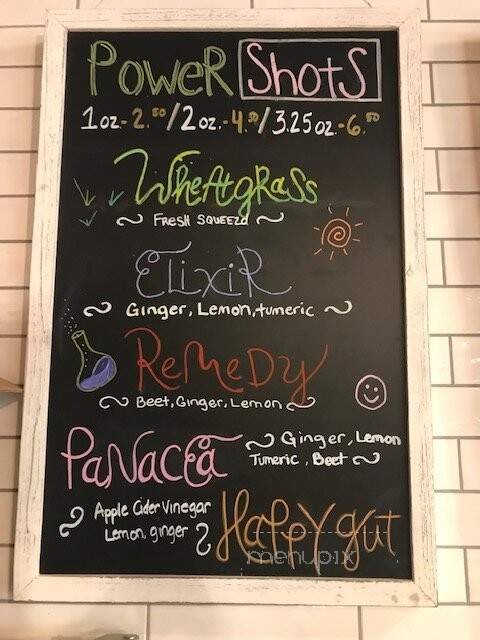 Power Shots
1oz.-2.50/2oz.-4.50/3.25oz.-6.50
Wheatgrass
~ Fresh Squeezd ~
Elixir
~ Ginger, Lemon, tumeric ~
Remedy
~ Beet, Ginger, Lemon ~
Panacea
~ Ginger, Lemon
Tumeric, Beet ~
Apple Cider Vinegar
Lemon, ginger
Happy gut
menupix